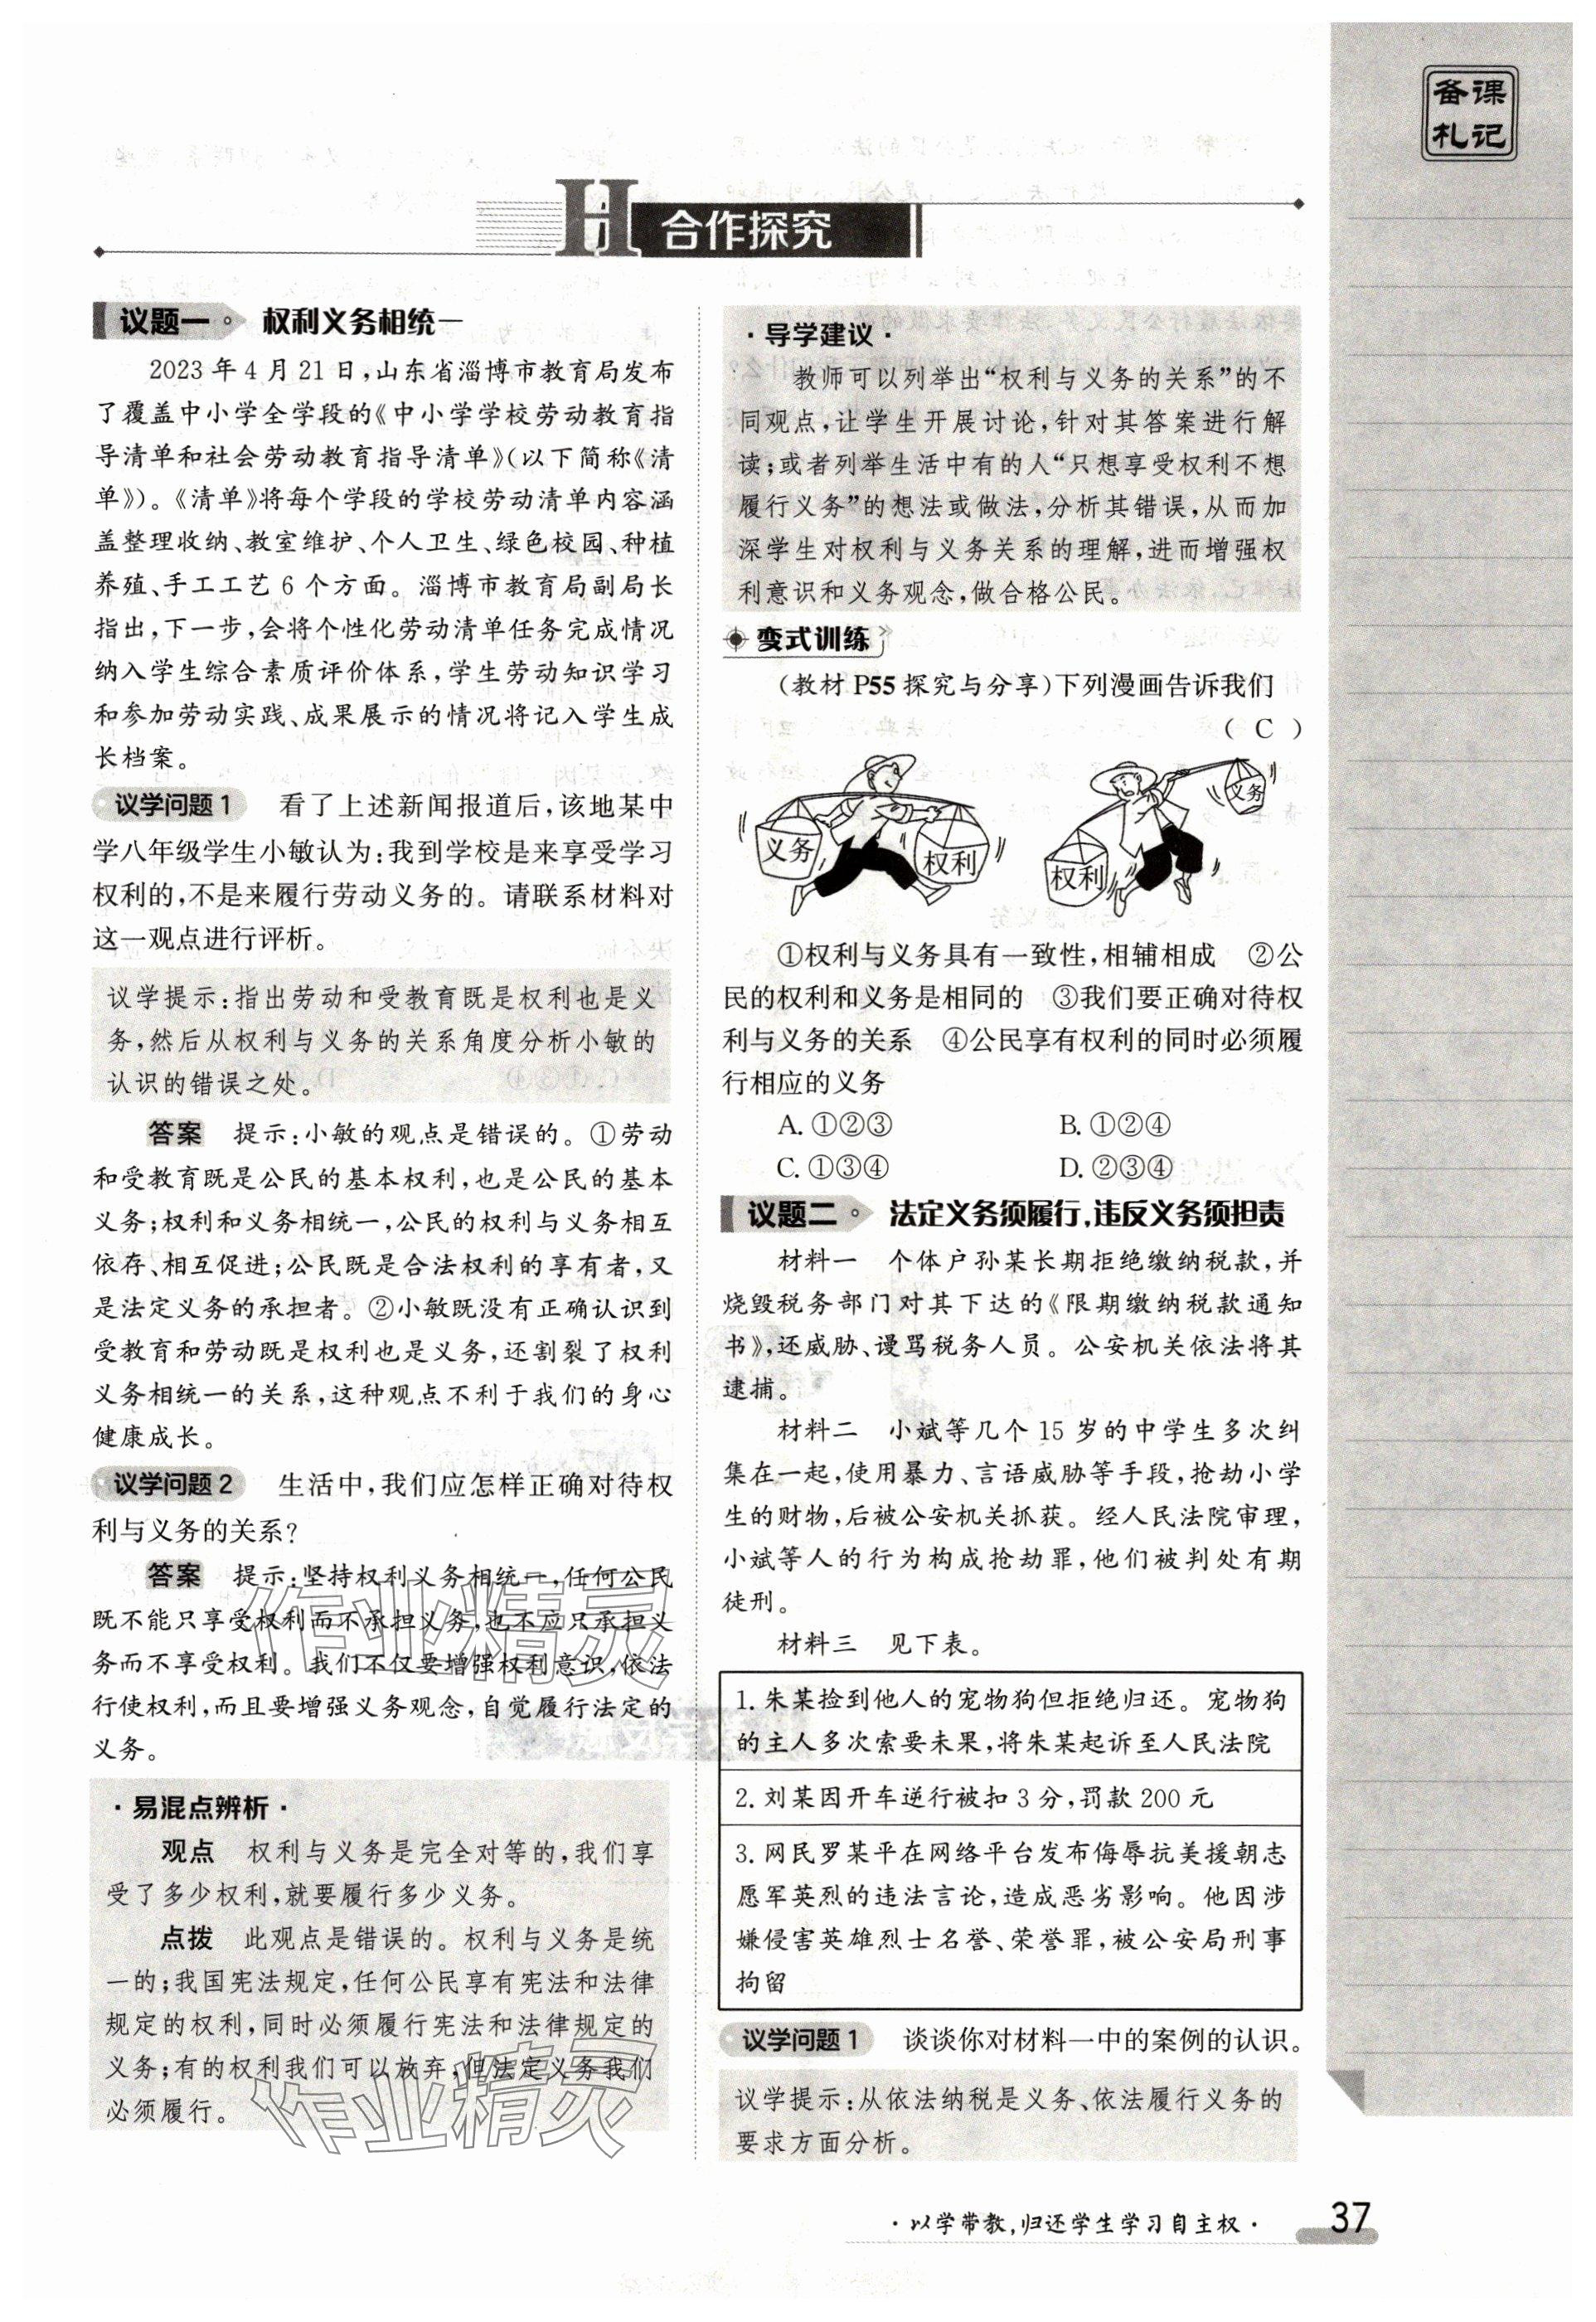 备课
札记
H 合作探究
议题一 权利义务相统一
2023年4月21日,山东省淄博市教育局发布
了覆盖中小学全学段的《中小学学校劳动教育指
导清单和社会劳动教育指导清单》(以下简称《清
单》)。《清单》将每个学段的学校劳动清单内容涵
盖整理收纳、教室维护、个人卫生、绿色校园、种植
养殖、手工工艺6个方面。淄博市教育局副局长
指出,下一步,会将个性化劳动清单任务完成情况
纳入学生综合素质评价体系,学生劳动知识学习
和参加劳动实践、成果展示的情况将记入学生成
长档案。
议学问题1 看了上述新闻报道后,该地某中
学八年级学生小敏认为:我到学校是来享受学习
权利的,不是来履行劳动义务的。请联系材料对
这一观点进行评析。
议学提示:指出劳动和受教育既是权利也是义
务,然后从权利与义务的关系角度分析小敏的
认识的错误之处。
答案 提示:小敏的观点是错误的。①劳动
和受教育既是公民的基本权利,也是公民的基本
义务;权利和义务相统一,公民的权利与义务相互
依存、相互促进;公民既是合法权利的享有者,又
是法定义务的承担者。②小敏既没有正确认识到
受教育和劳动既是权利也是义务,还割裂了权利
义务相统一的关系,这种观点不利于我们的身心
健康成长。
议学问题2 生活中,我们应怎样正确对待权
利与义务的关系?
答案 提示:坚持权利义务相统一,任何公民
既不能只享受权利而不承担义务,也不应只承担义
务而不享受权利。我们不仅要增强权利意识,依法
行使权利,而且要增强义务观念,自觉履行法定的
义务。
·易混点辨析·
观点 权利与义务是完全对等的,我们享
受了多少权利,就要履行多少义务。
点拨 此观点是错误的。权利与义务是统
一的;我国宪法规定,任何公民享有宪法和法律
规定的权利,同时必须履行宪法和法律规定的
义务;有的权利我们可以放弃,但法定义务我们
必须履行。
作业精灵
作业精灵
·导学建议·
教师可以列举出“权利与义务的关系”的不
同观点,让学生开展讨论,针对其答案进行解
读;或者列举生活中有的人“只想享受权利不想
履行义务”的想法或做法,分析其错误,从而加
深学生对权利与义务关系的理解,进而增强权
利意识和义务观念,做合格公民。
变式训练
(教材P55探究与分享)下列漫画告诉我们
( C )
义务
权利
权利
义务
①权利与义务具有一致性,相辅相成 ②公
民的权利和义务是相同的 ③我们要正确对待权
利与义务的关系 ④公民享有权利的同时必须履
行相应的义务
A. ①②③ B. ①②④
C. ①③④ D. ②③④
议题二 法定义务须履行,违反义务须担责
材料一 个体户孙某长期拒绝缴纳税款,并
烧毁税务部门对其下达的《限期缴纳税款通知
书》,还威胁、谩骂税务人员。公安机关依法将其
逮捕。
材料二 小斌等几个15岁的中学生多次纠
集在一起,使用暴力、言语威胁等手段,抢劫小学
生的财物,后被公安机关抓获。经人民法院审理,
小斌等人的行为构成抢劫罪,他们被判处有期
徒刑。
材料三 见下表。
1. 朱某捡到他人的宠物狗但拒绝归还。宠物狗
的主人多次索要未果,将朱某起诉至人民法院
2. 刘某因开车逆行被扣3分,罚款200元
3. 网民罗某平在网络平台发布侮辱抗美援朝志
愿军英烈的违法言论,造成恶劣影响。他因涉
嫌侵害英雄烈士名誉、荣誉罪,被公安局刑事
拘留
议学问题1 谈谈你对材料一中的案例的认识。
议学提示:从依法纳税是义务、依法履行义务的
要求方面分析。
·以学带教,归还学生学习自主权·
37